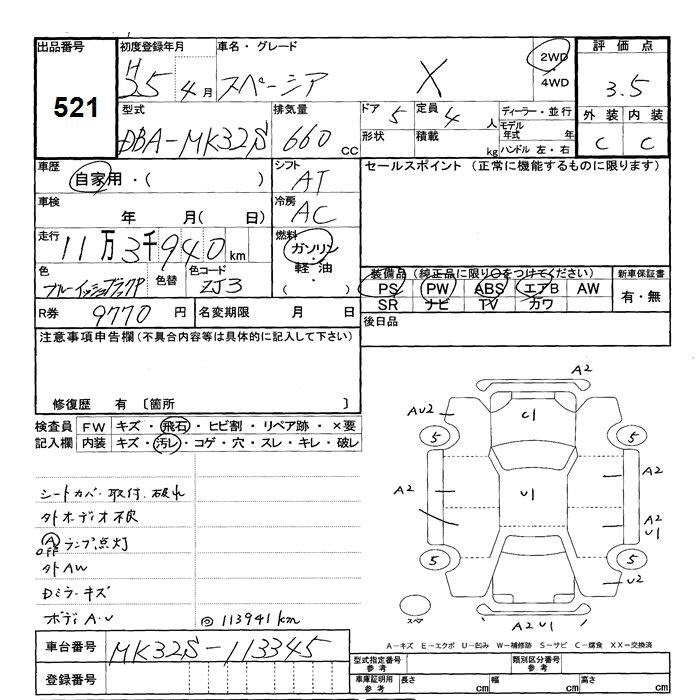 出品番号 初度登録年月 車名・グレード 2WD 評価点
521 H25 4月 スペーシア X 4WD 3.5
型式 排気量 ドア 5 定員 4人 ディーラー・並行 外装 内装
DBA-MK32S 660cc 形状 積載 kg モデル年式 年 C C
ハンドル 左・右
車歴 シフト セールスポイント (正常に機能するものに限ります)
自家用・( ) AT
車検 冷房
年 月( 日) AC
走行 燃料
11万3千940km ガソリン
色 色替 色コード 軽油 装備品(純正品に限り○をつけてください) 新車保証書
ブルーイッシュブラックP ZJ3 ( ) PS PW ABS エアB AW 有・無
SR ナビ TV カワ
R券 9770円 名変期限 月 日 後日品
注意事項申告欄(不具合内容等は具体的に記入して下さい)
修復歴 有 〔箇所 〕
検査員 FW キズ・飛石・ヒビ割・リペア跡・×要
記入欄 内装 キズ・汚レ・コゲ・穴・スレ・キレ・破レ
シートカバー取付.破れ
外オーディオ不良
A OFF ランプ点灯
外AW
Dミラーキズ
ボディA・U ◎113941km
A2
AU2 C1
5 5
A2 U1 A2
A2
U1
5 5
U2
A2 U1
A-キズ E-エクボ U-凹み W-補修跡 S-サビ C-腐食 XX-交換済
車台番号 MK32S-113345
登録番号
型式指定番号 参考 類別区分番号 参考
車庫証明用 参考 長さ cm 幅 cm 高さ cm